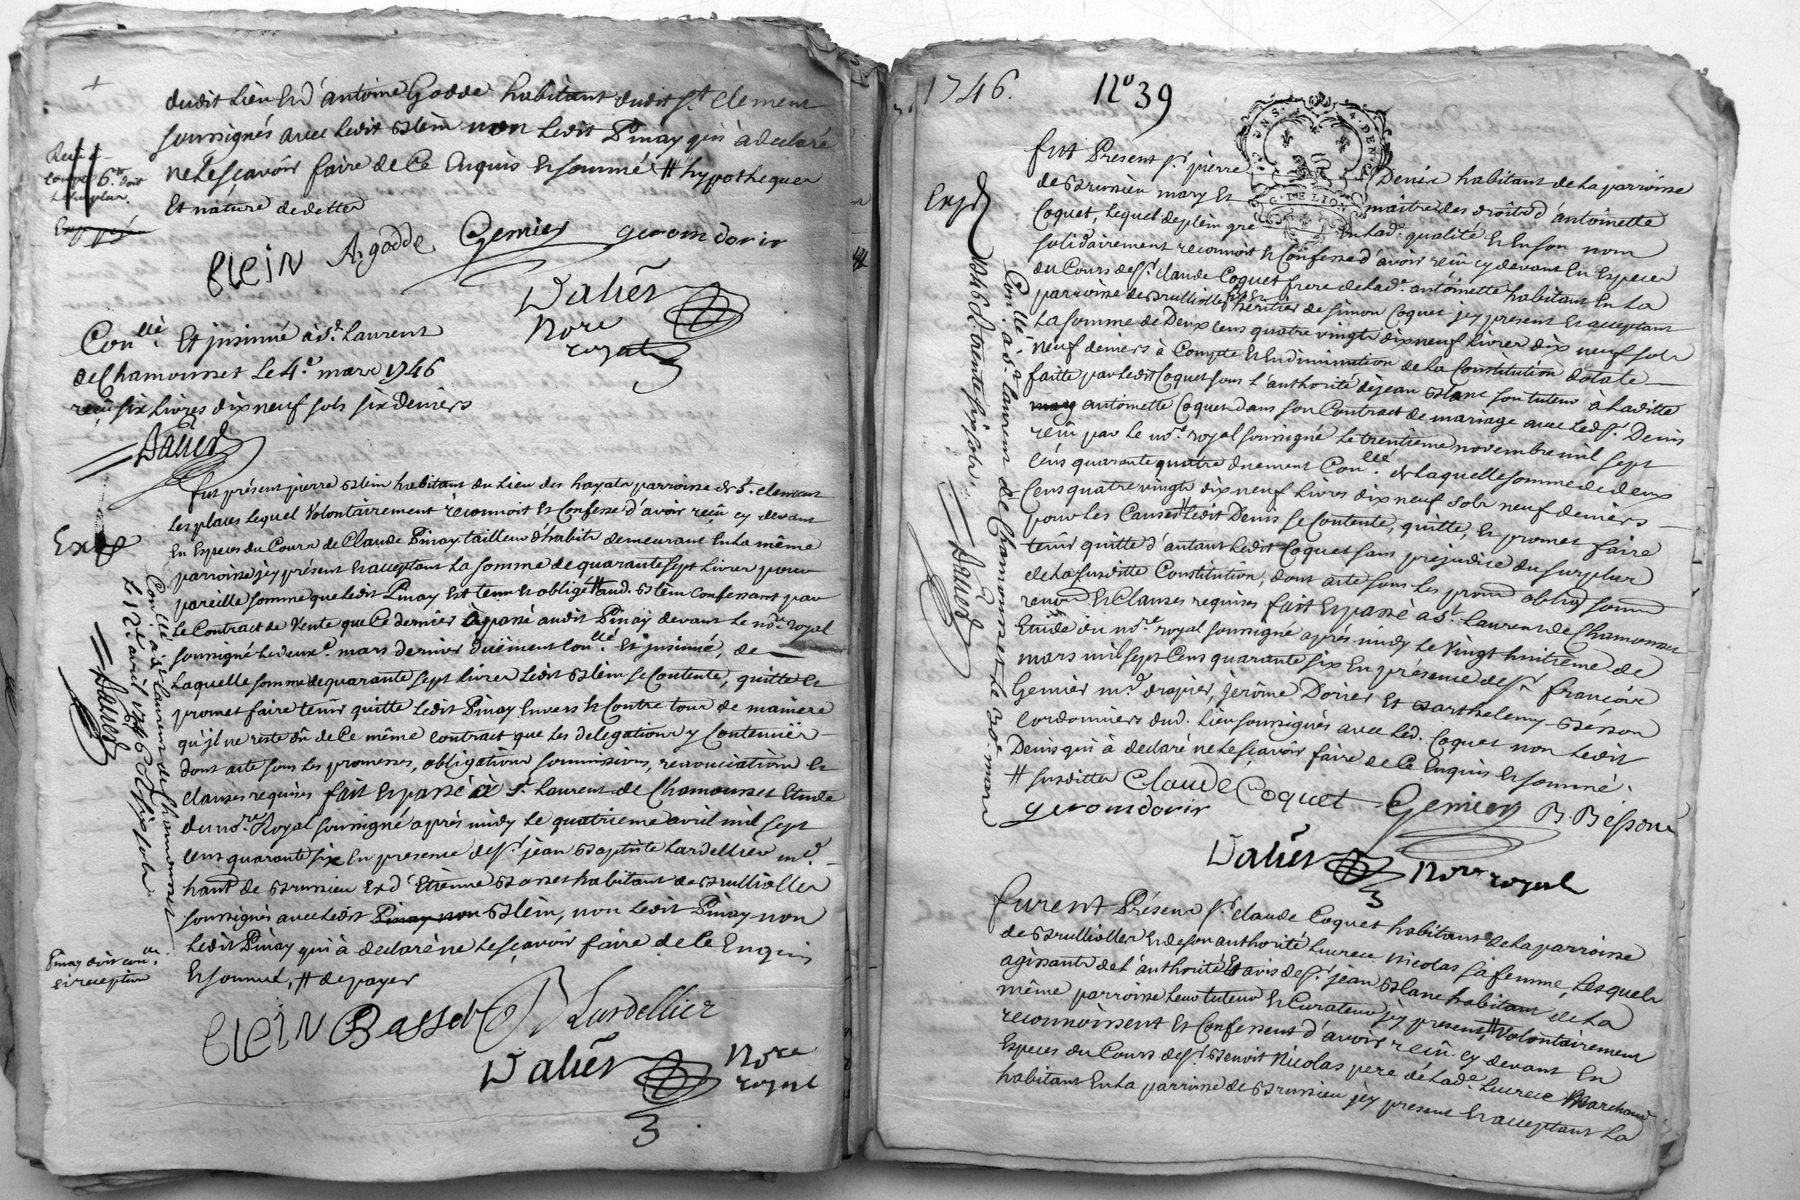 dudit Lieu Et d'antoine Godde habitant dudit St. Clement
soussignés avec Ledit Blein non Ledit Pinay qui à declaré
ne Le sçavoir faire de Ce Enquis Et sommé # hypothequer
Et nature de dettes
6.tt doit
Expédié
Blein A. godde Genier gerom dorir
Dalier
No.re
royal
Con.llé Et jnsinué à St. Laurent
de Chamousset Le 4.e mars 1746
reçu six Livres dix neuf sols six Deniers
Dalier
fut présent pierre Blein habitant du Lieu des hayats parroisse de St. clement
Les places Lequel Volontairement reconnoit Et Confesse d'avoir reçû cy devant
En Especes du Cours de Claude Pinay tailleur d'habits demeurant En La même
parroisse jcy présent Et acceptant La somme de quarante sept Livres pour
pareille somme que Ledit Pinay Est tenu Et obligé # aud. Blein Confessant par
Le Contract de Vente que Ce dernier à passé audit Pinay devant Le no.re royal
soussigné Le deux.e mars dernier düement Con.llé Et jnsinué, de
Laquelle somme de quarante sept Livres Ledit Blein se Contente, quitte Et
promet faire tenir quitte Ledit Pinay Envers Et Contre tous de maniere
qu'jl ne reste dû de Ce même contract que Les delegations y Contenües
dont acte sous Les promesses, obligations soumissions, renonciations Et
clauses requises fait Et passé à St. Laurent de Chamousset Etude
du no.re Royal soussigné après midy Le quatrieme avril mil sept
Cens quarante six En presence de Sr. jean Baptiste Lardellier m.d
hant de Brussieu Et d'Etienne Basset habitant de Brullioller
soussignés avec Ledit Pinay non Blein, non Ledit Pinay non
Ledit Pinay qui à declaré ne Le sçavoir faire de Ce Enquis
Et sommé, # de payer
Exp
Con.llé à St. Laurent de Chamousset
Le 12.e avril 1746
Dalier
Pinay doit con.lle
Et reception
Blein Basset Lardellier
Dalier No.re
royal
1746. N.o 39
GENS. DEN. G. DE LION
fut Present Sr. pierre Denis habitant de La parroisse
de Brussieu mary Et maitre des droits d'antoinette
Coquet, Lequel de plein gré En Lad.e qualité Et En son nom
solidairement reconnoit Et Confesse d'avoir reçû cy devant En Especes
du Cours de Sr. claude Coquet frere de Lad.e antoinette habitant En La
parroisse de Brullioller Et heritier de simon Coquet jcy present Et acceptant
La somme de Deux Cens quatre vingt dix neuf Livres dix neuf sols
neuf deniers à Compte Et En diminution de La Constitution dotale
faitte par Ledit Coquet sous L'authorité de jean Blanc son tuteur à Laditte
mary antoinette Coquet dans son Contract de mariage avec Led. Sr. Denis
reçû par Le no.re royal soussigné Le trentieme novembre mil sept
Cens quarante quatre duement Con.llé de Laquelle somme de deux
Cens quatre vingt dix neuf Livres dix neuf sols neuf deniers
pour Les Causes # Ledit Denis se Contente, quitte, Et promet faire
tenir quitte d'autant Ledit Coquet sans préjudice du surplus
de La susditte Constitution, dont acte sous Les prom. oblig. soum.
renon. Et Clauses requises fait Et passé à St. Laurent de Chamousset
Etude du no.re royal soussigné après midy Le Vingt huitieme de
mars mil sept Cens quarante six En présence de Sr. François
Genier m.d drapier, Jerôme Dorier Et Barthelemy Besson
Cordonniers dud. Lieu soussignés avec Led. Coquet non Ledit
Denis qui à declaré ne Le sçavoir faire de Ce Enquis Et sommé.
# susdittes Claude Coquet Genier B. Besson
gerom dorir
Dalier No.re royal
Expd
Con.llé à St. Laurent de Chamousset Le 30.e mars
1746 d. trente six sols
Dalier
furent Présens Sr. claude Coquet habitant de La parroisse
de Brullioller Et de son authorité Lucrece Nicolas sa femme, Lesquels
agissants de L'authorité Et avis de Sr. jean Blanc habitant de La
même parroisse Leur tuteur Et Curateur jcy present, # Volontairement
reconnoissent Et Confessent d'avoir reçû cy devant En
Especes du Cours de Sr. Benoit Nicolas pere de Lad.e Lucrece Marchand
habitant En La parroisse de Brussieu jcy present Et acceptant La